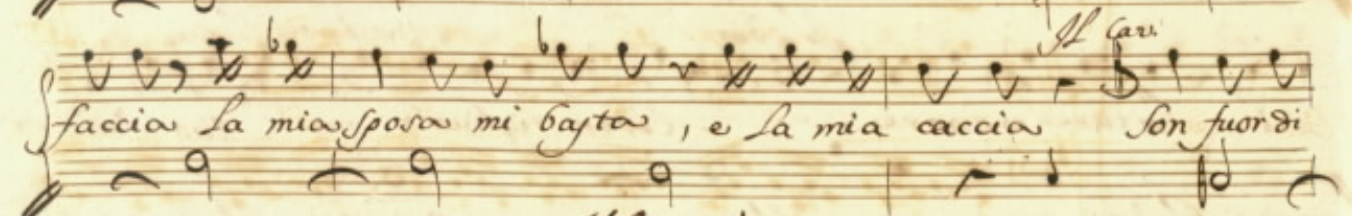 Il Cav:
faccia la mia sposa mi basta, e la mia caccia son fuor di